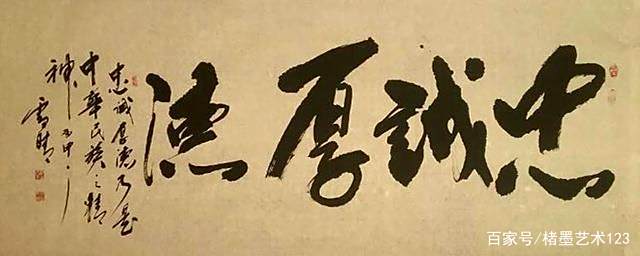 忠誠厚德
忠诚厚德乃是
中華民族之精
神 丙申
雪晴
百家号/楮墨艺术123